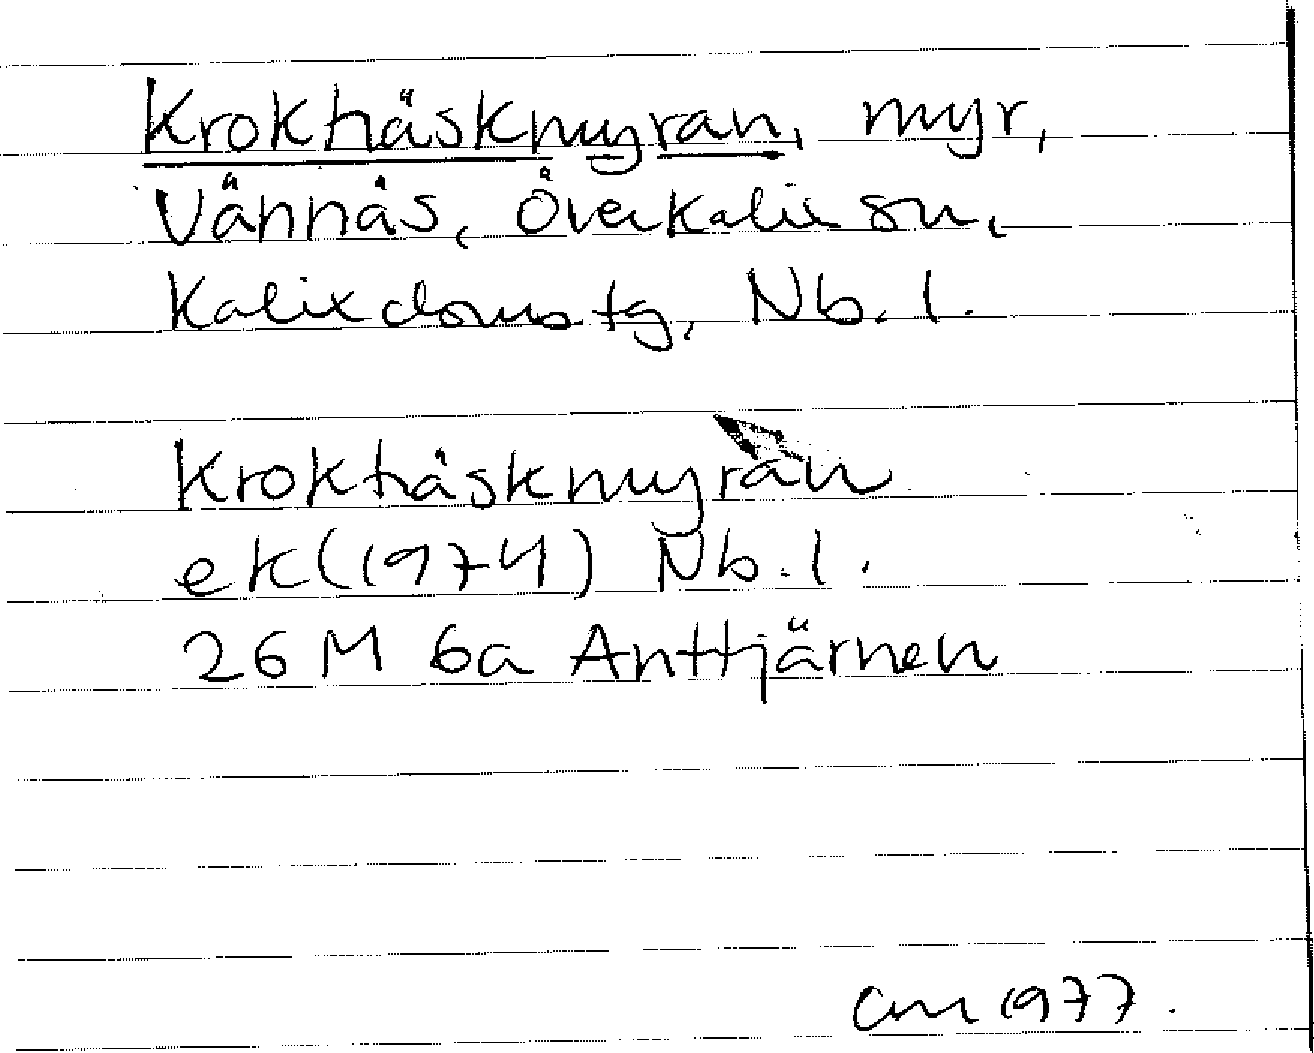 Krokträskmyran, myr,
Vännäs, Överkalix sn,
Kalix domstg, Nb. l.
Krokträskmyran
ek (1974) Nb. l.
26 M 6a Anttjärnen
1977.